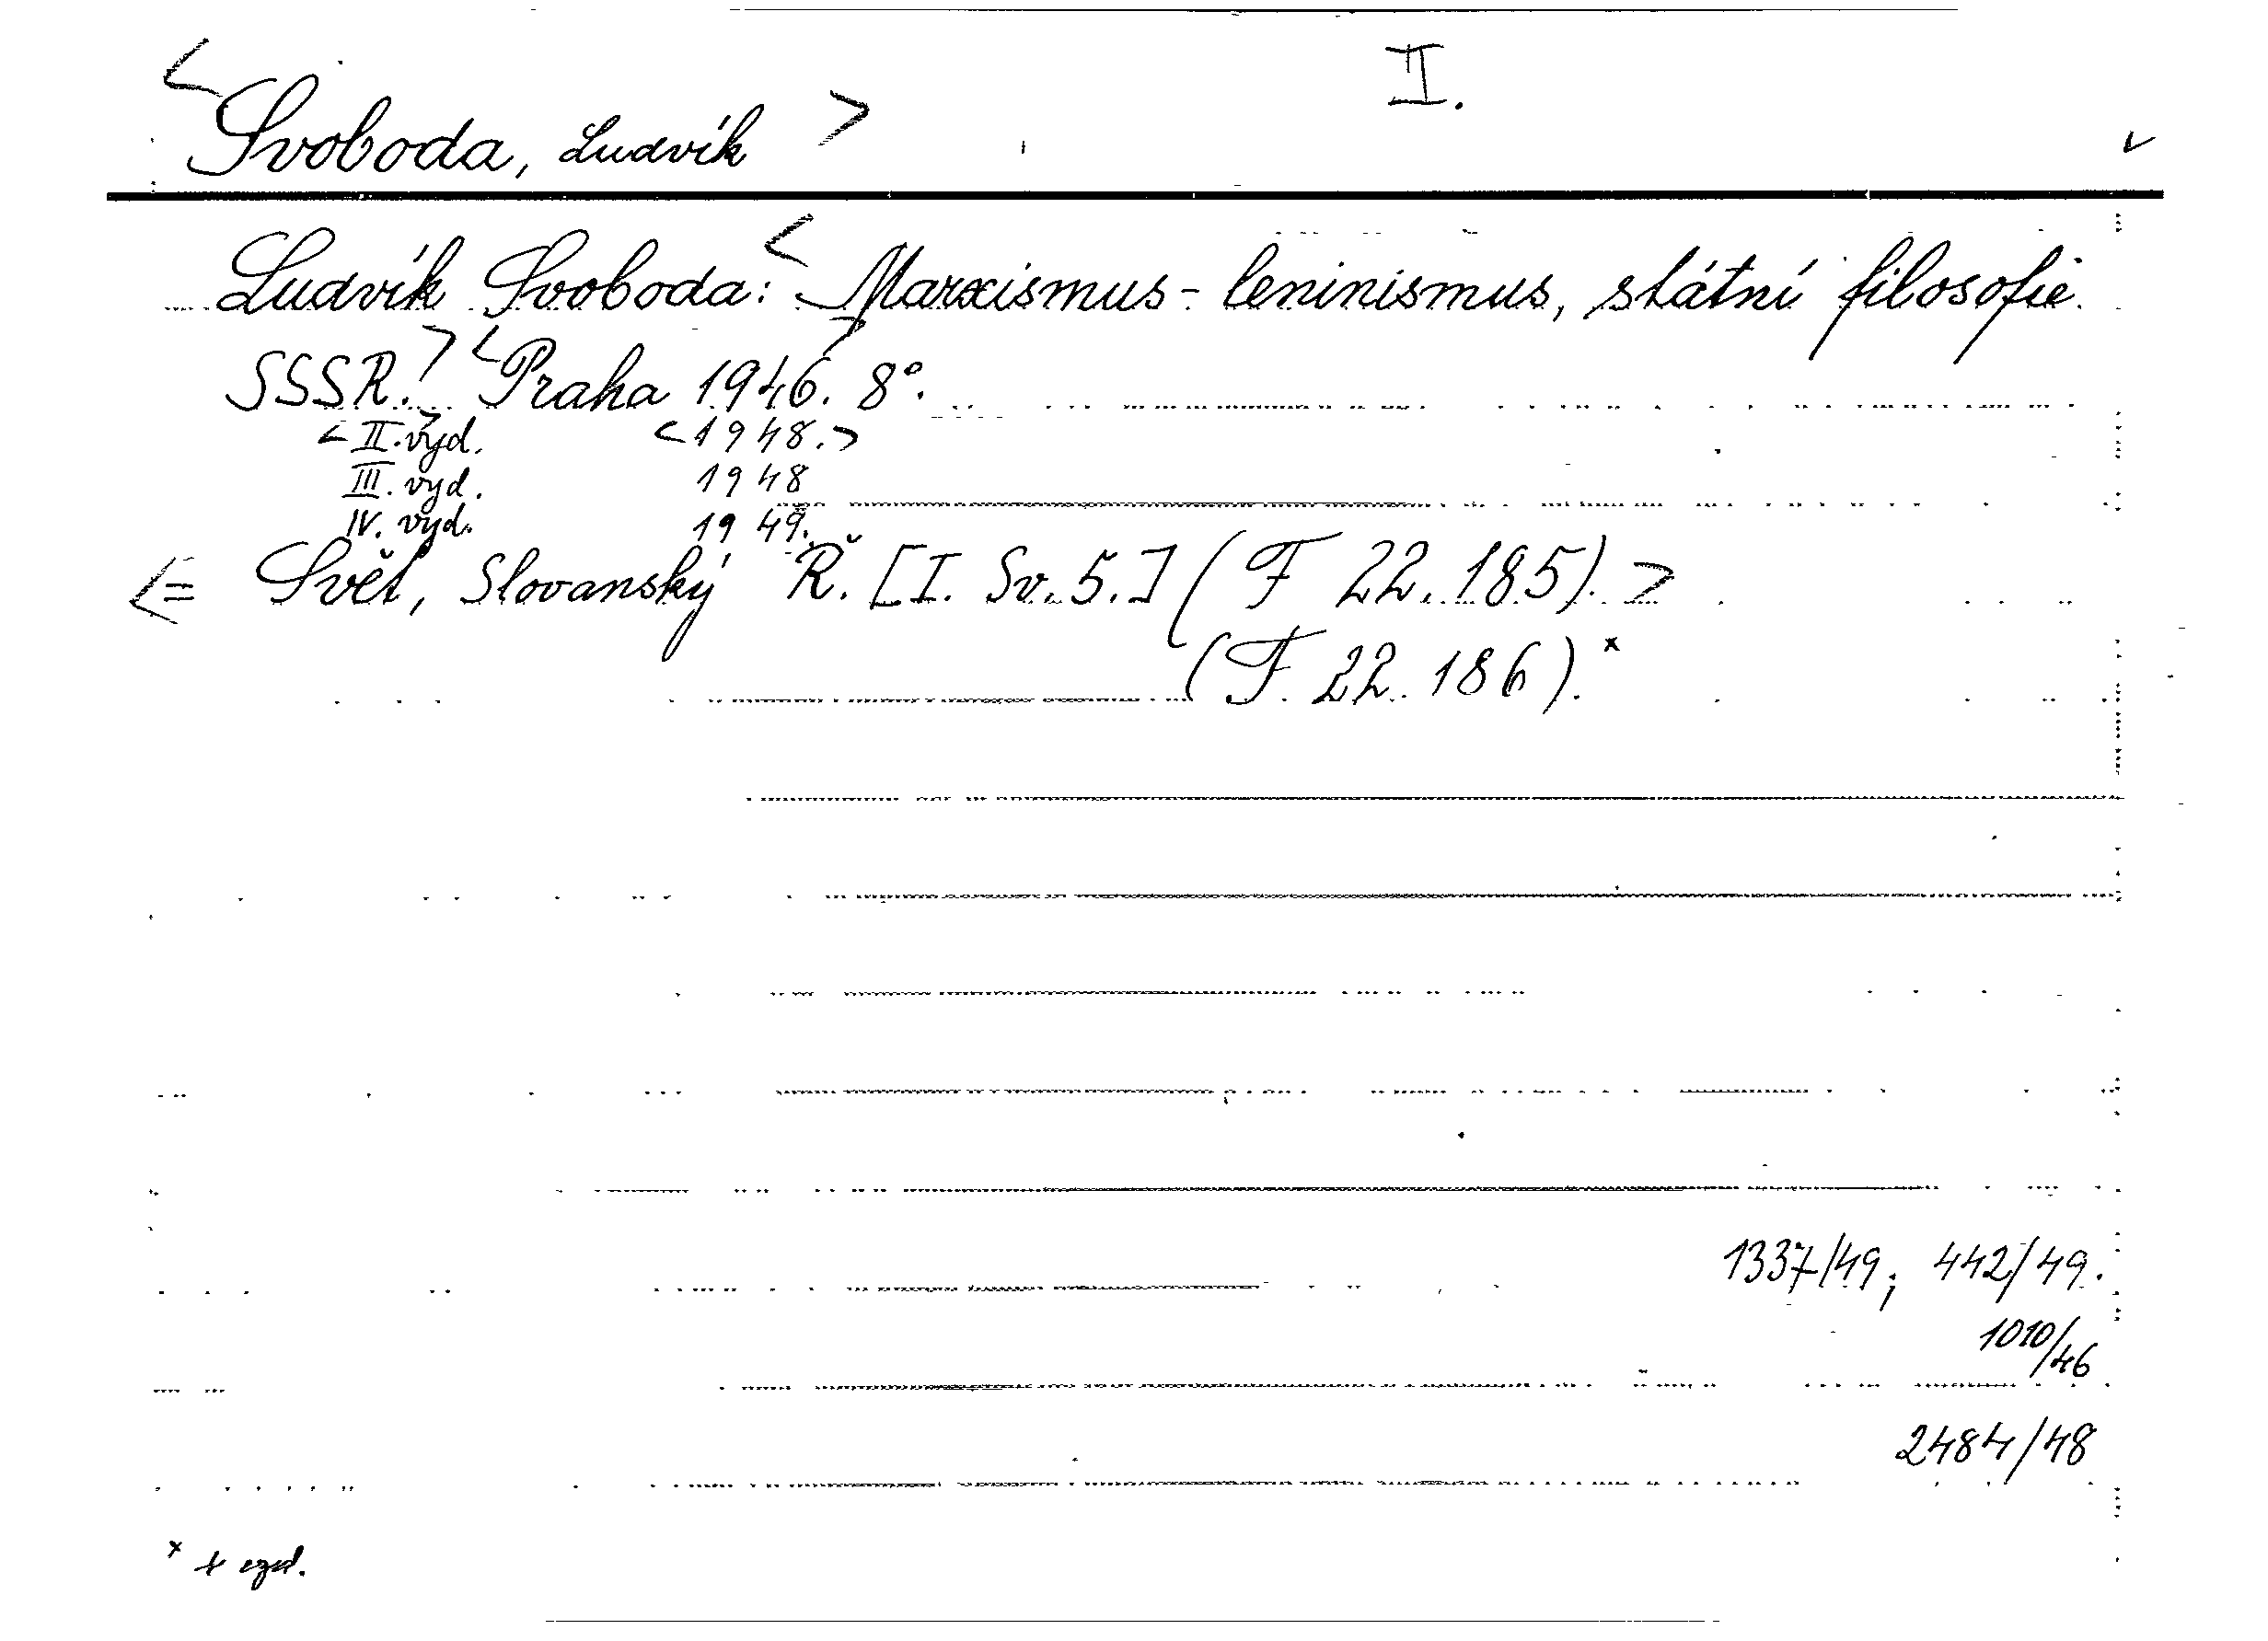 I.
<Svoboda, Ludvík>
Ludvík Svoboda: <Marxismus-leninismus, státní filosofie
SSSR.> <Praha 1946.> 8°.
<II. vyd. <1948.>
III. vyd. 1948
IV. vyd. 1949.
<= Svět, Slovanský Ř. [I. Sv. 5.] (F 22.185).>
(F 22.186).x
1337/49; 442/49.
1010/46
2484/48
x